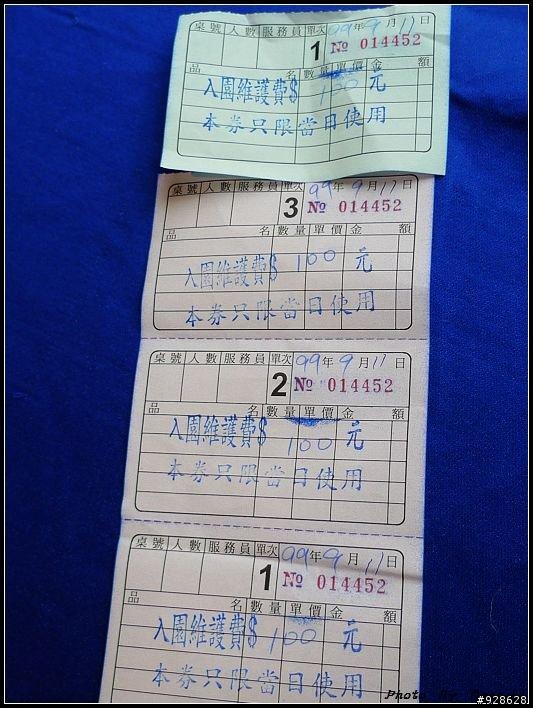 桌號 人數 服務員 單次 99年9月11日
1 № 014452
品名 數量 單價 金額
入園維護費$ 100 元
本券只限當日使用
桌號 人數 服務員 單次 99年9月11日
3 № 014452
品名 數量 單價 金額
入園維護費$ 100 元
本券只限當日使用
桌號 人數 服務員 單次 99年9月11日
2 № 014452
品名 數量 單價 金額
入園維護費$ 100 元
本券只限當日使用
桌號 人數 服務員 單次 99年9月11日
1 № 014452
品名 數量 單價 金額
入園維護費$ 100 元
本券只限當日使用
Photo By
#928628